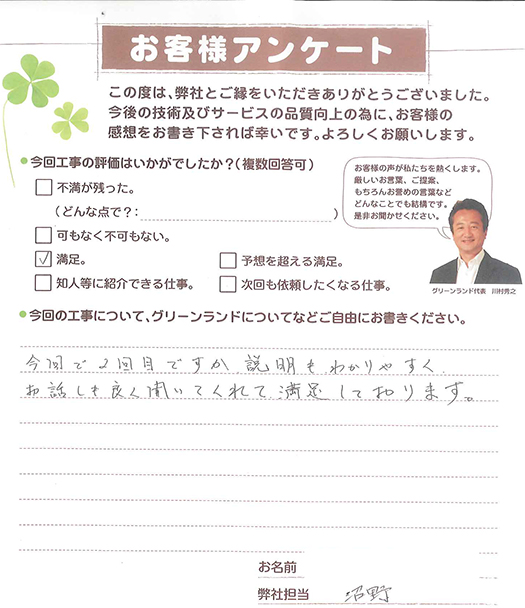 お客様アンケート
この度は、弊社とご縁をいただきありがとうございました。
今後の技術及びサービスの品質向上の為に、お客様の
感想をお書き下されば幸いです。よろしくお願いします。
●今回工事の評価はいかがでしたか?(複数回答可)
不満が残った。
(どんな点で?: )
可もなく不可もない。
✓満足。
予想を超える満足。
知人等に紹介できる仕事。
次回も依頼したくなる仕事。
お客様の声が私たちを熱くします。
厳しいお言葉、ご提案、
もちろんお誉めの言葉など
どんなことでも結構です。
是非お聞かせください。
グリーンランド代表 川村秀之
●今回の工事について、グリーンランドについてなどご自由にお書きください。
今回で2回目ですが説明もわかりやすく
お話しも良く聞いてくれて満足しております。
お名前
弊社担当 沼野